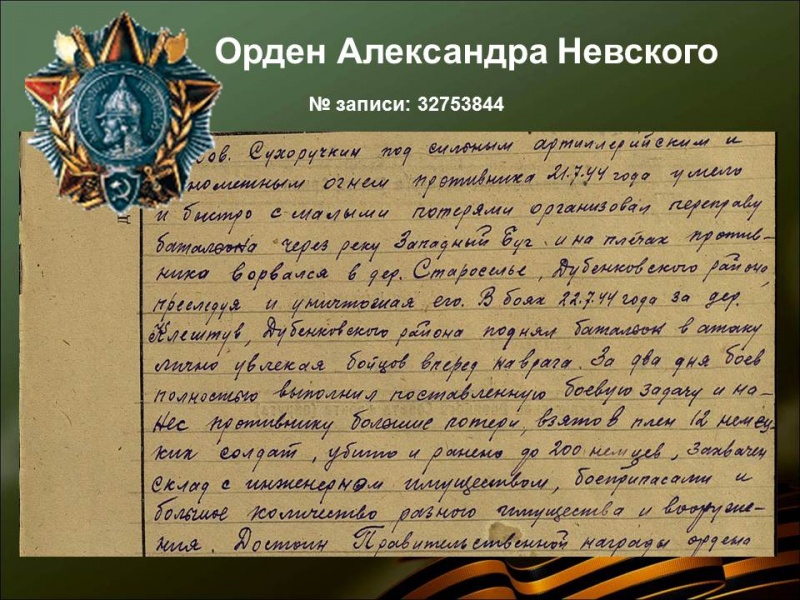 Орден Александра Невского
№ записи: 32753844
Сухоручкин под сильным артиллерийским и
огнем противника 21.7.44 года умело
и быстро с малыми потерями организовал переправу
батальона через реку Западный Буг и на плечах против-
ника ворвался в дер. Староселье, Дубенковского района,
преследуя и уничтожая его. В боях 22.7.44 года за дер.
Клештув, Дубенковского района поднял батальон в атаку
лично увлекая бойцов вперед на врага. За два дня боев
полностью выполнил поставленную боевую задачу и на-
нес противнику большие потери, взято в плен 12 немец-
ких солдат, убито и ранено до 200 немцев, захвачен
склад с инженерном имуществом, боеприпасами и
большое количество разного имущества и вооруже-
ния. Достоин Правительственной награды ордена